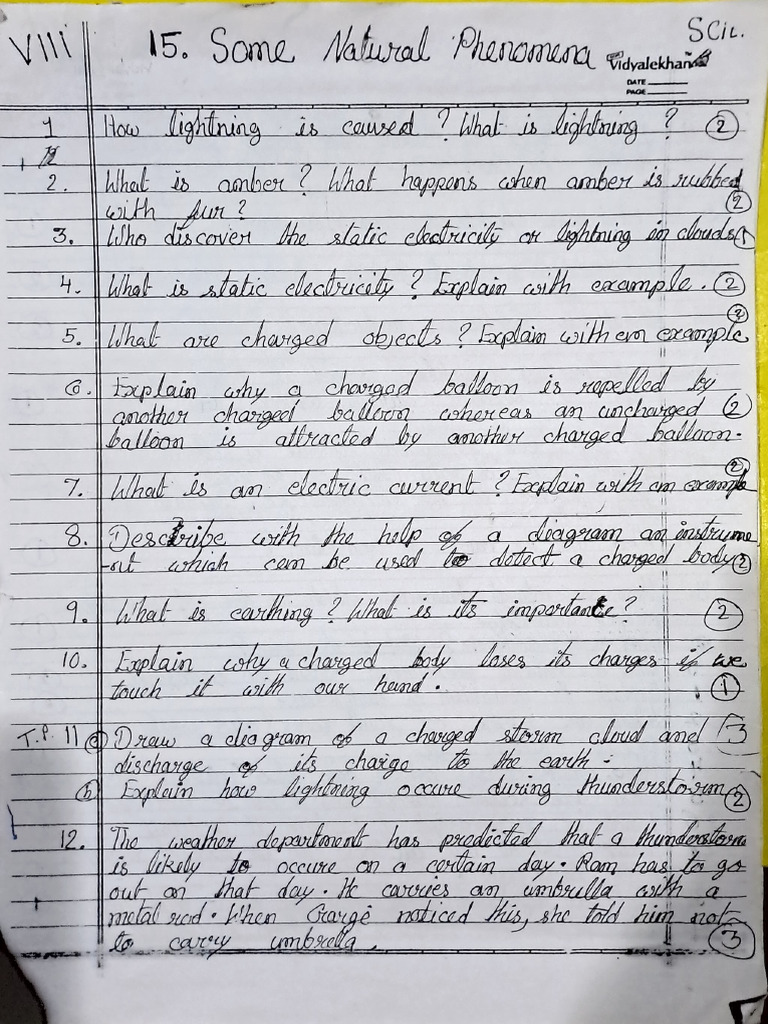 VIII 15. Some Natural Phenomena SCie.
Vidyalekhan
DATE
PAGE
1 How lightning is caused? What is lightning? 2
2. What is amber? What happens when amber is rubbed
with fur? 2
3. Who discover the static electricity or lightning in clouds. 1
4. What is static electricity? Explain with example. 2
5. What are charged objects? Explain with em example 2
6. Explain why a charged balloon is repelled by
another charged balloon whereas an uncharged 2
balloon is attracted by another charged balloon.
7. What is an electric current? Explain with em example 2
8. Describe with the help of a diagram an instrume
-nt which can be used to detect a charged body 2
9. What is earthing? What is its importance? 2
10. Explain why a charged body loses its charges if we
touch it with our hand. 1
T.P. 11 a Draw a diagram of a charged storm cloud and 3
discharge of its charge to the earth.
b Explain how lightning occure during thunderstoirm 2
12. The weather department has predicted that a thunderstorm
is likely to occure on a certain day. Ram has to go
out on that day. He carries an umbrella with a
metal rod. When Gargé noticed this, she told him not
to carry umbrella. 3